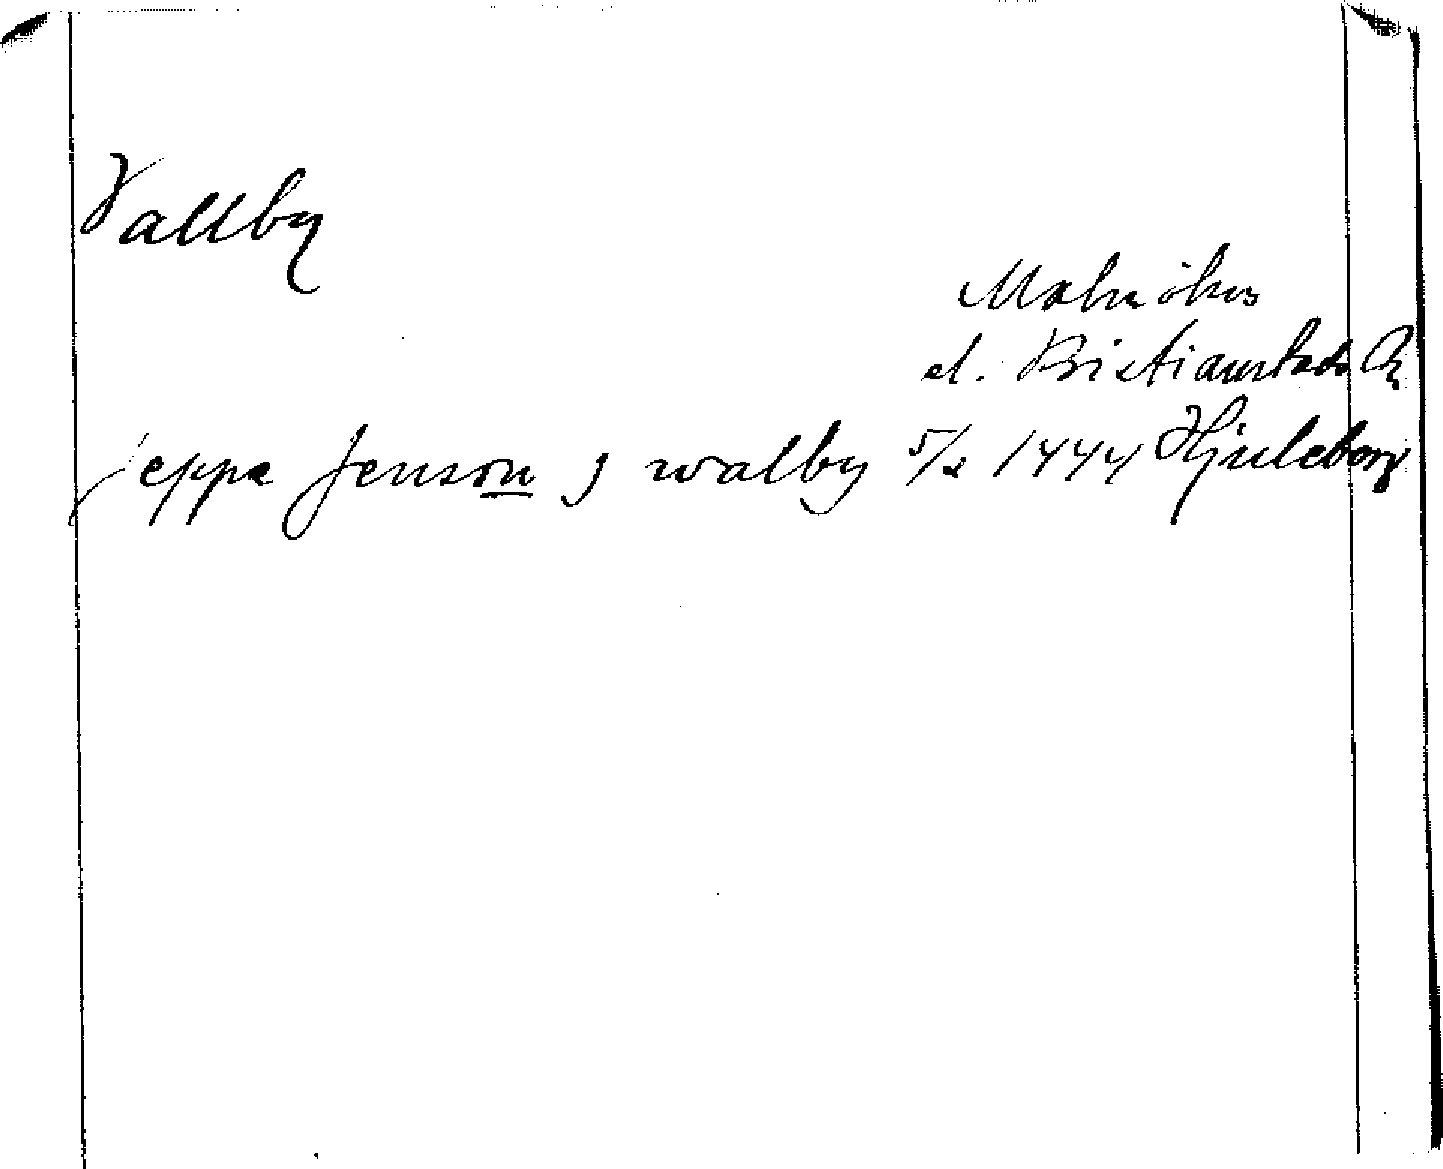 Vallby
Malmöhus
el. Kristianstads
jeppe Jenson j walby 5/2 1444 Hjuleberg